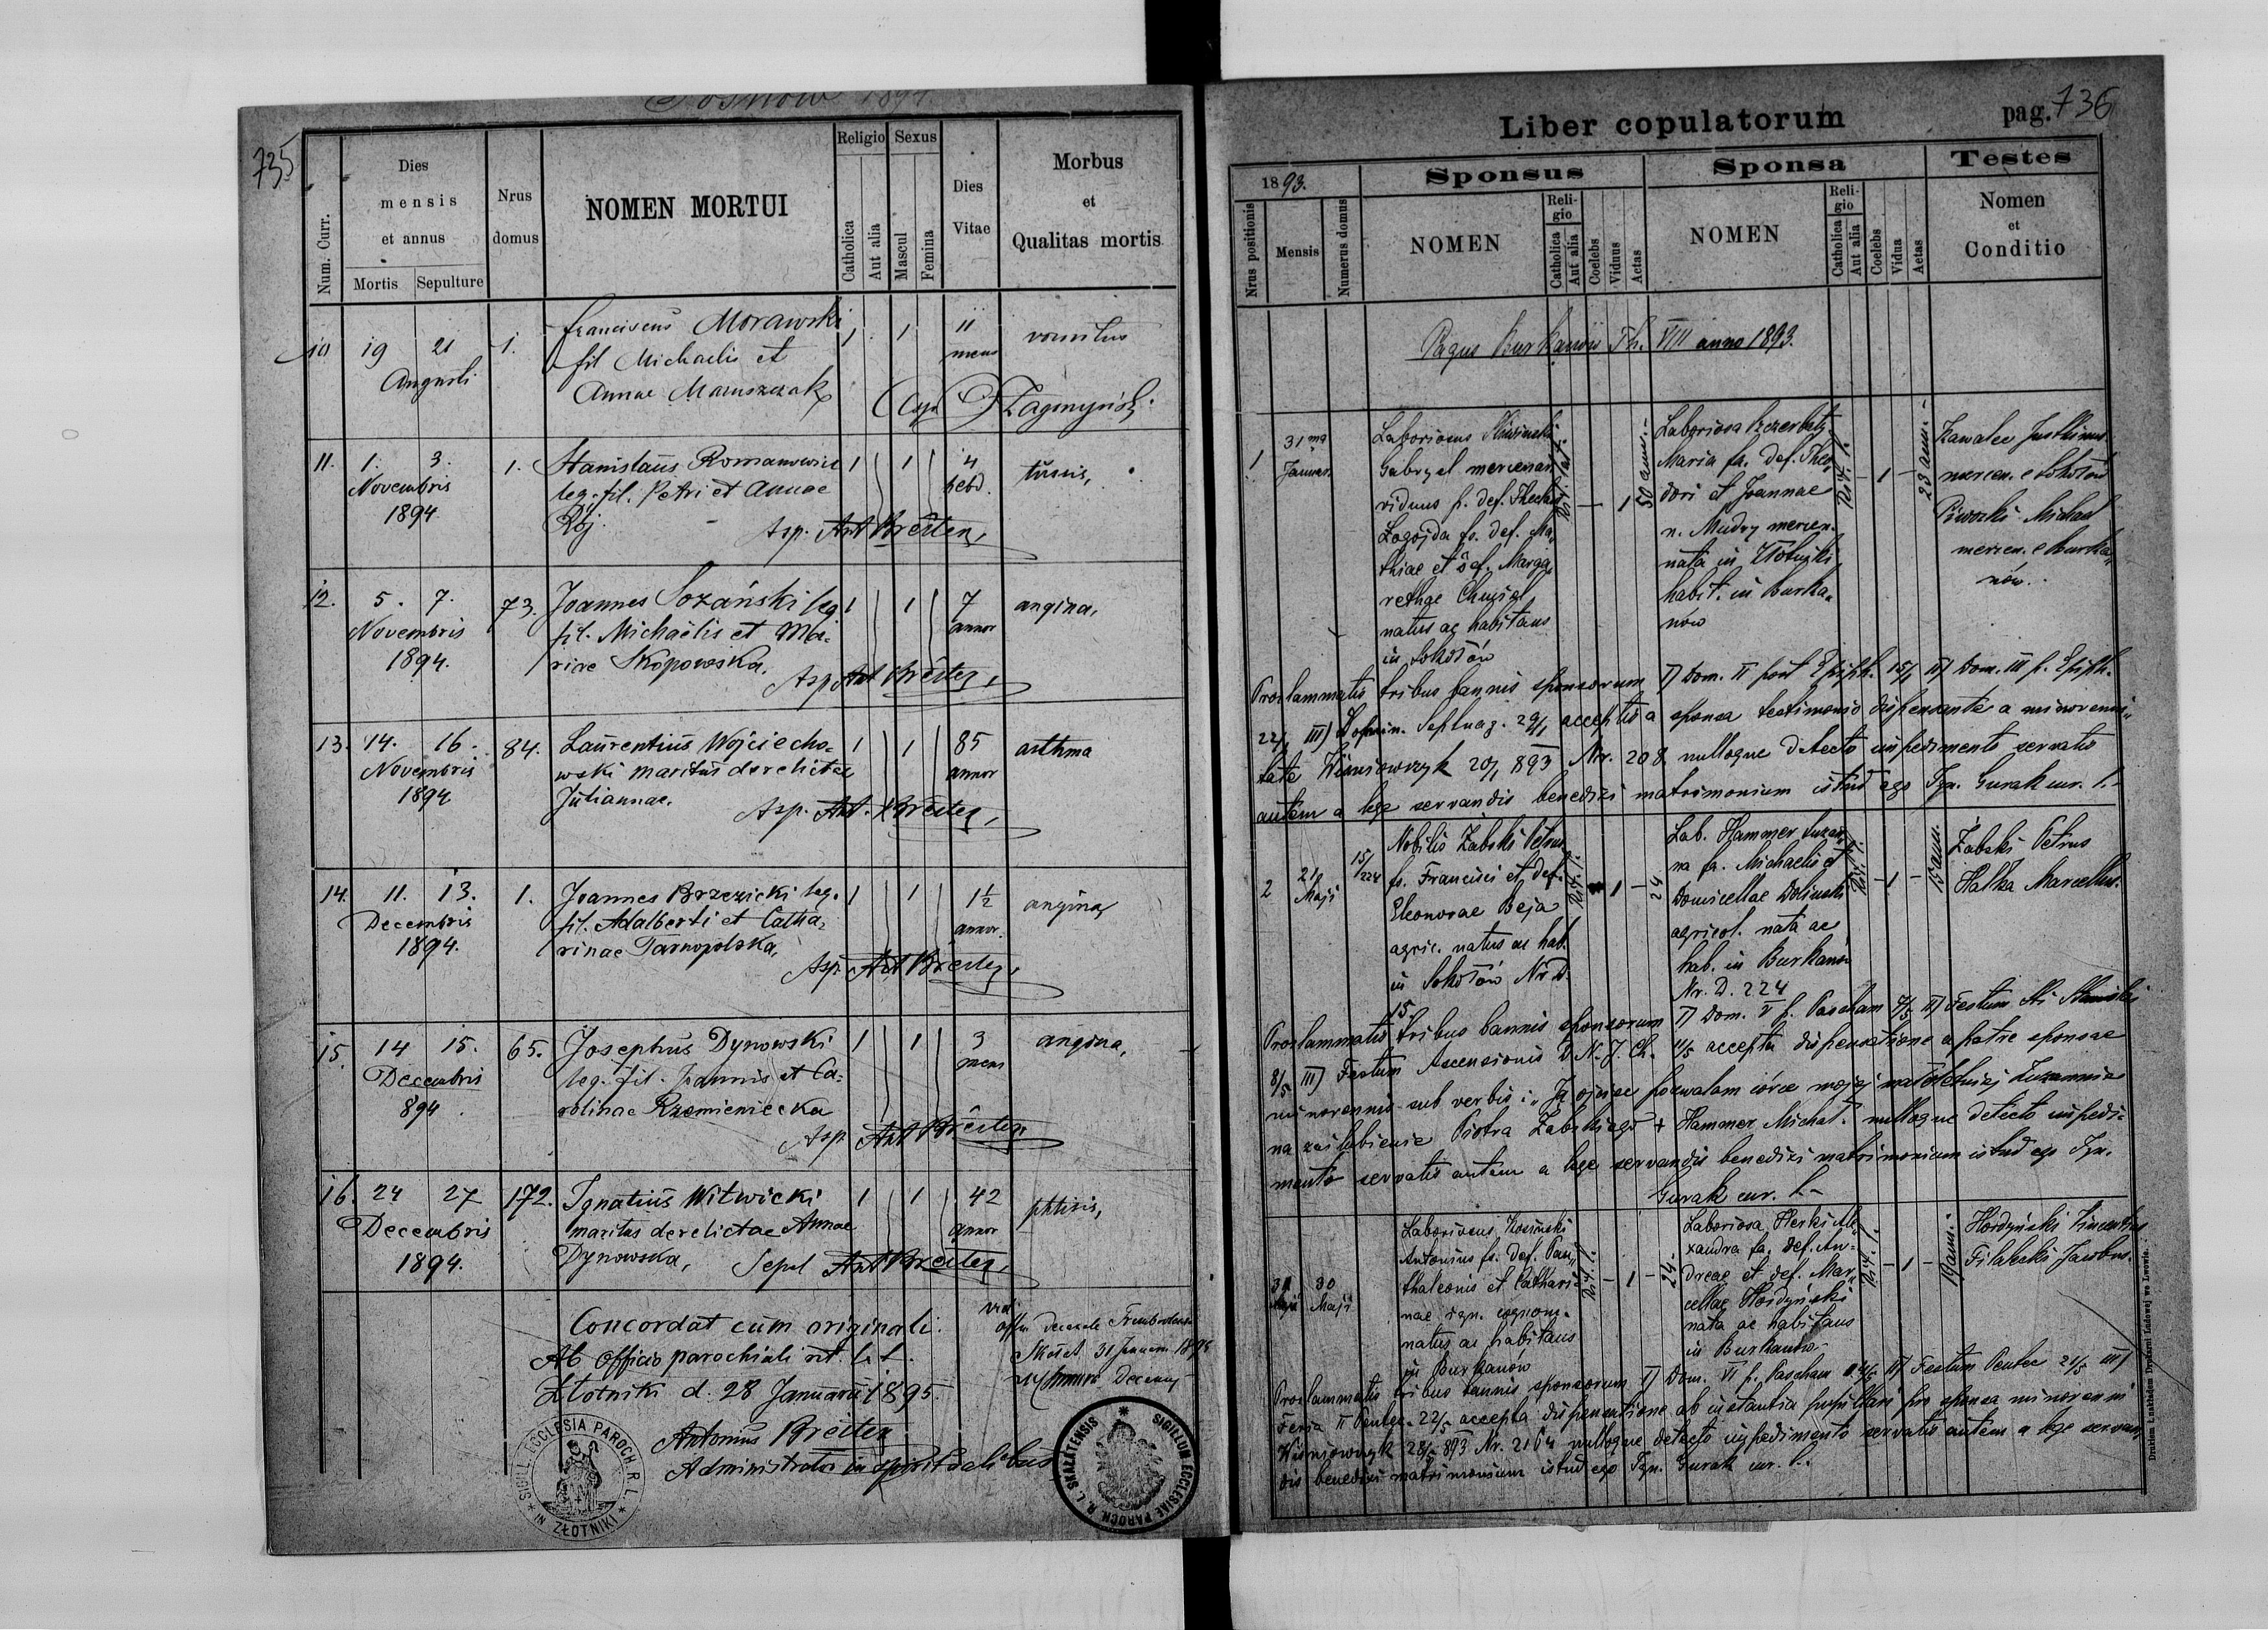 Sosnów 1894.
735
Num. Curr.
Dies
mensis
et annus
Mortis
Sepulture
Nrus
domus
NOMEN MORTUI
Religio
Catholica
Aut alia
Sexus
Mascul
Femina
Dies
Vitae
Morbus
et
Qualitas mortis
10 19 21 1. Franciscus Morawski 1 1 11 vomitus
Augusti fil Michaelis et mens
Annae Maruszczak
11. 1. 3. 1. Stanislaus Romanowicz 1 1 4 tussis,
Novembris leg. fil. Petri et Annae hebd.
1894 Rój. Asp. Ant Breiter,
12. 5. 7. 73. Joannes Sozański leg 1 1 7 angina,
Novembris fil. Michaëlis et Ma- annor
1894. riae Skopowska.
Asp Ant Breiter,
13. 14. 16. 84. Laurentius Wojciecho- 1 1 85 asthma
Novembris wski maritus derelictae annor
1894 Juliannae. Asp. Ant. Breiter,
14. 11. 13. 1. Joannes Brzezicki leg. 1 1 1½ angina,
Decembris fil. Adalberti et Catha- annor.
1894. rinae Tarnopolska,
Asp Ant Breiter,
15. 14 15. 65. Josephus Dynowski 1 1 3 angina,
Decembris leg. fil. Joannis et Ca- mens
894. rolinae Rzemieniecka
Asp Ant Breiter
16. 24 27 172. Ignatius Witwicki 1 1 42 phtisis,
Decembris maritus derelictae Annae annor
1894. Dynowska, Sepel Ant Breiter,
Concordat cum originali.
Ab officio parochiali rit. lat.
Złotniki d. 28 Januarii 1895
Antonius Breiter
Administrator in spiritualibus
SIGILL. ECCLESIA PAROCH. R. L.
IN ZŁOTNIKI
SIGILLUM ECCLESIAE PAROCH. R. L. SKAŁATENSIS
Liber copulatorum
pag. 736
1893.
Nrus positionis
Mensis
Numerus domus
Sponsus
NOMEN
Reli-
gio
Catholica
Aut alia
Coelebs
Viduus
Aetas
Sponsa
NOMEN
Reli-
gio
Catholica
Aut alia
Coelebs
Vidua
Aetas
Testes
Nomen
et
Conditio
Pagus Burkanów Th. VIII anno 1893.
1
31ma
Januar.
Laboriosus
Gabryel mercenar.
viduus p. def. Thecla
Łogojda fs. def. Ma-
thiae et def. Marga-
rethae
natus ac habitans
in Sokołów
Rit. lat.
- 1
50 ann.-
Laboriosa Szczerbaty
Maria fa. def. Theo-
dori et Joannae
n. Mudry mercen.
nata in Złotniki
habit. in Burka-
nów
Rit. l.
- 1 -
23 ann.-
Kawalec Justinus
mercen. e Sokołów
Piworski Michael
mercen. e Burka-
nów.
Proclammatis tribus bannis sponsorum I) Dom. II post Epiph. 15/1 II) Dom. III p. Epiph.
22/1 III) Domin. Septuag. 29/1 accepto a sponsa testimonio dispensante a minorenni-
tate Wiśniowczyk 20/1 893 Nr. 208 nulloque detecto impedimento servatis
autem a lege servandis benedixi matrimonium istud ego Ign. Gurak cur. l.-
2
21
Maji
15/224
Nobilis Żabski Petrus
fs. Francisci et def.
Eleonorae Beja
agric. natus ac hab.
in Sokołów Nr D.
15.
Rit. l.
1 -
24
Lab. Hammer Suzan-
na fa. Michaelis et
Domicellae Dolinski
agricol. nata ac
hab. in Burkanów
Nr. D. 224
Rit. l.
- 1 -
Żabski Petrus
Hałka Marcellus.
Proclammatis tribus bannis sponsorum I) Dom. V p. Pascham 7/5 II) Festum Sti Stanislai
8/5 III) Festum Ascensionis D. N. J. Ch. 11/5 accepta dispensatione a patre sponsae
minorennis sub verbis: "Ja ojciec pozwalam córce mojej małoletniej Zuzannie
na zaślubienie Piotra Żabskiego + Hammer Michał." nulloque detecto impedi-
mento servatis autem a lege servandis benedixi matrimonium istud ego Ign.
Gurak cur. l.-
3
30
Maji
Laboriosus Kosiński
Antonius fs. def. Pan-
thaleonis et Cathari-
nae
natus ac habitans
in Burkanów
Rit. l.
- 1 -
24.
Laboriosa Herki Ale-
xandra fa. def. An-
dreae et def. Mar-
cellae Hordyński
nata ac habitans
in Burkanów
Rit. l.
- 1 -
19 ann.
Hordyński Vincentius
Jacobus.
Proclammatis tribus bannis sponsorum I) Dom. VI p. Pascham 14/5 II) Festum Pentec 21/5 III)
Feria II Pentec. 22/5 accepta dispensatione ab instantia pupillari pro sponsa minorenni
Wiśniowczyk 28/5 893 Nr. 2164 nulloque detecto impedimento servatis autem a lege servan-
dis benedixi matrimonium istud ego Ign. Gurak cur. l.
Drukiem i nakładem Drukarni Ludowej we Lwowie.